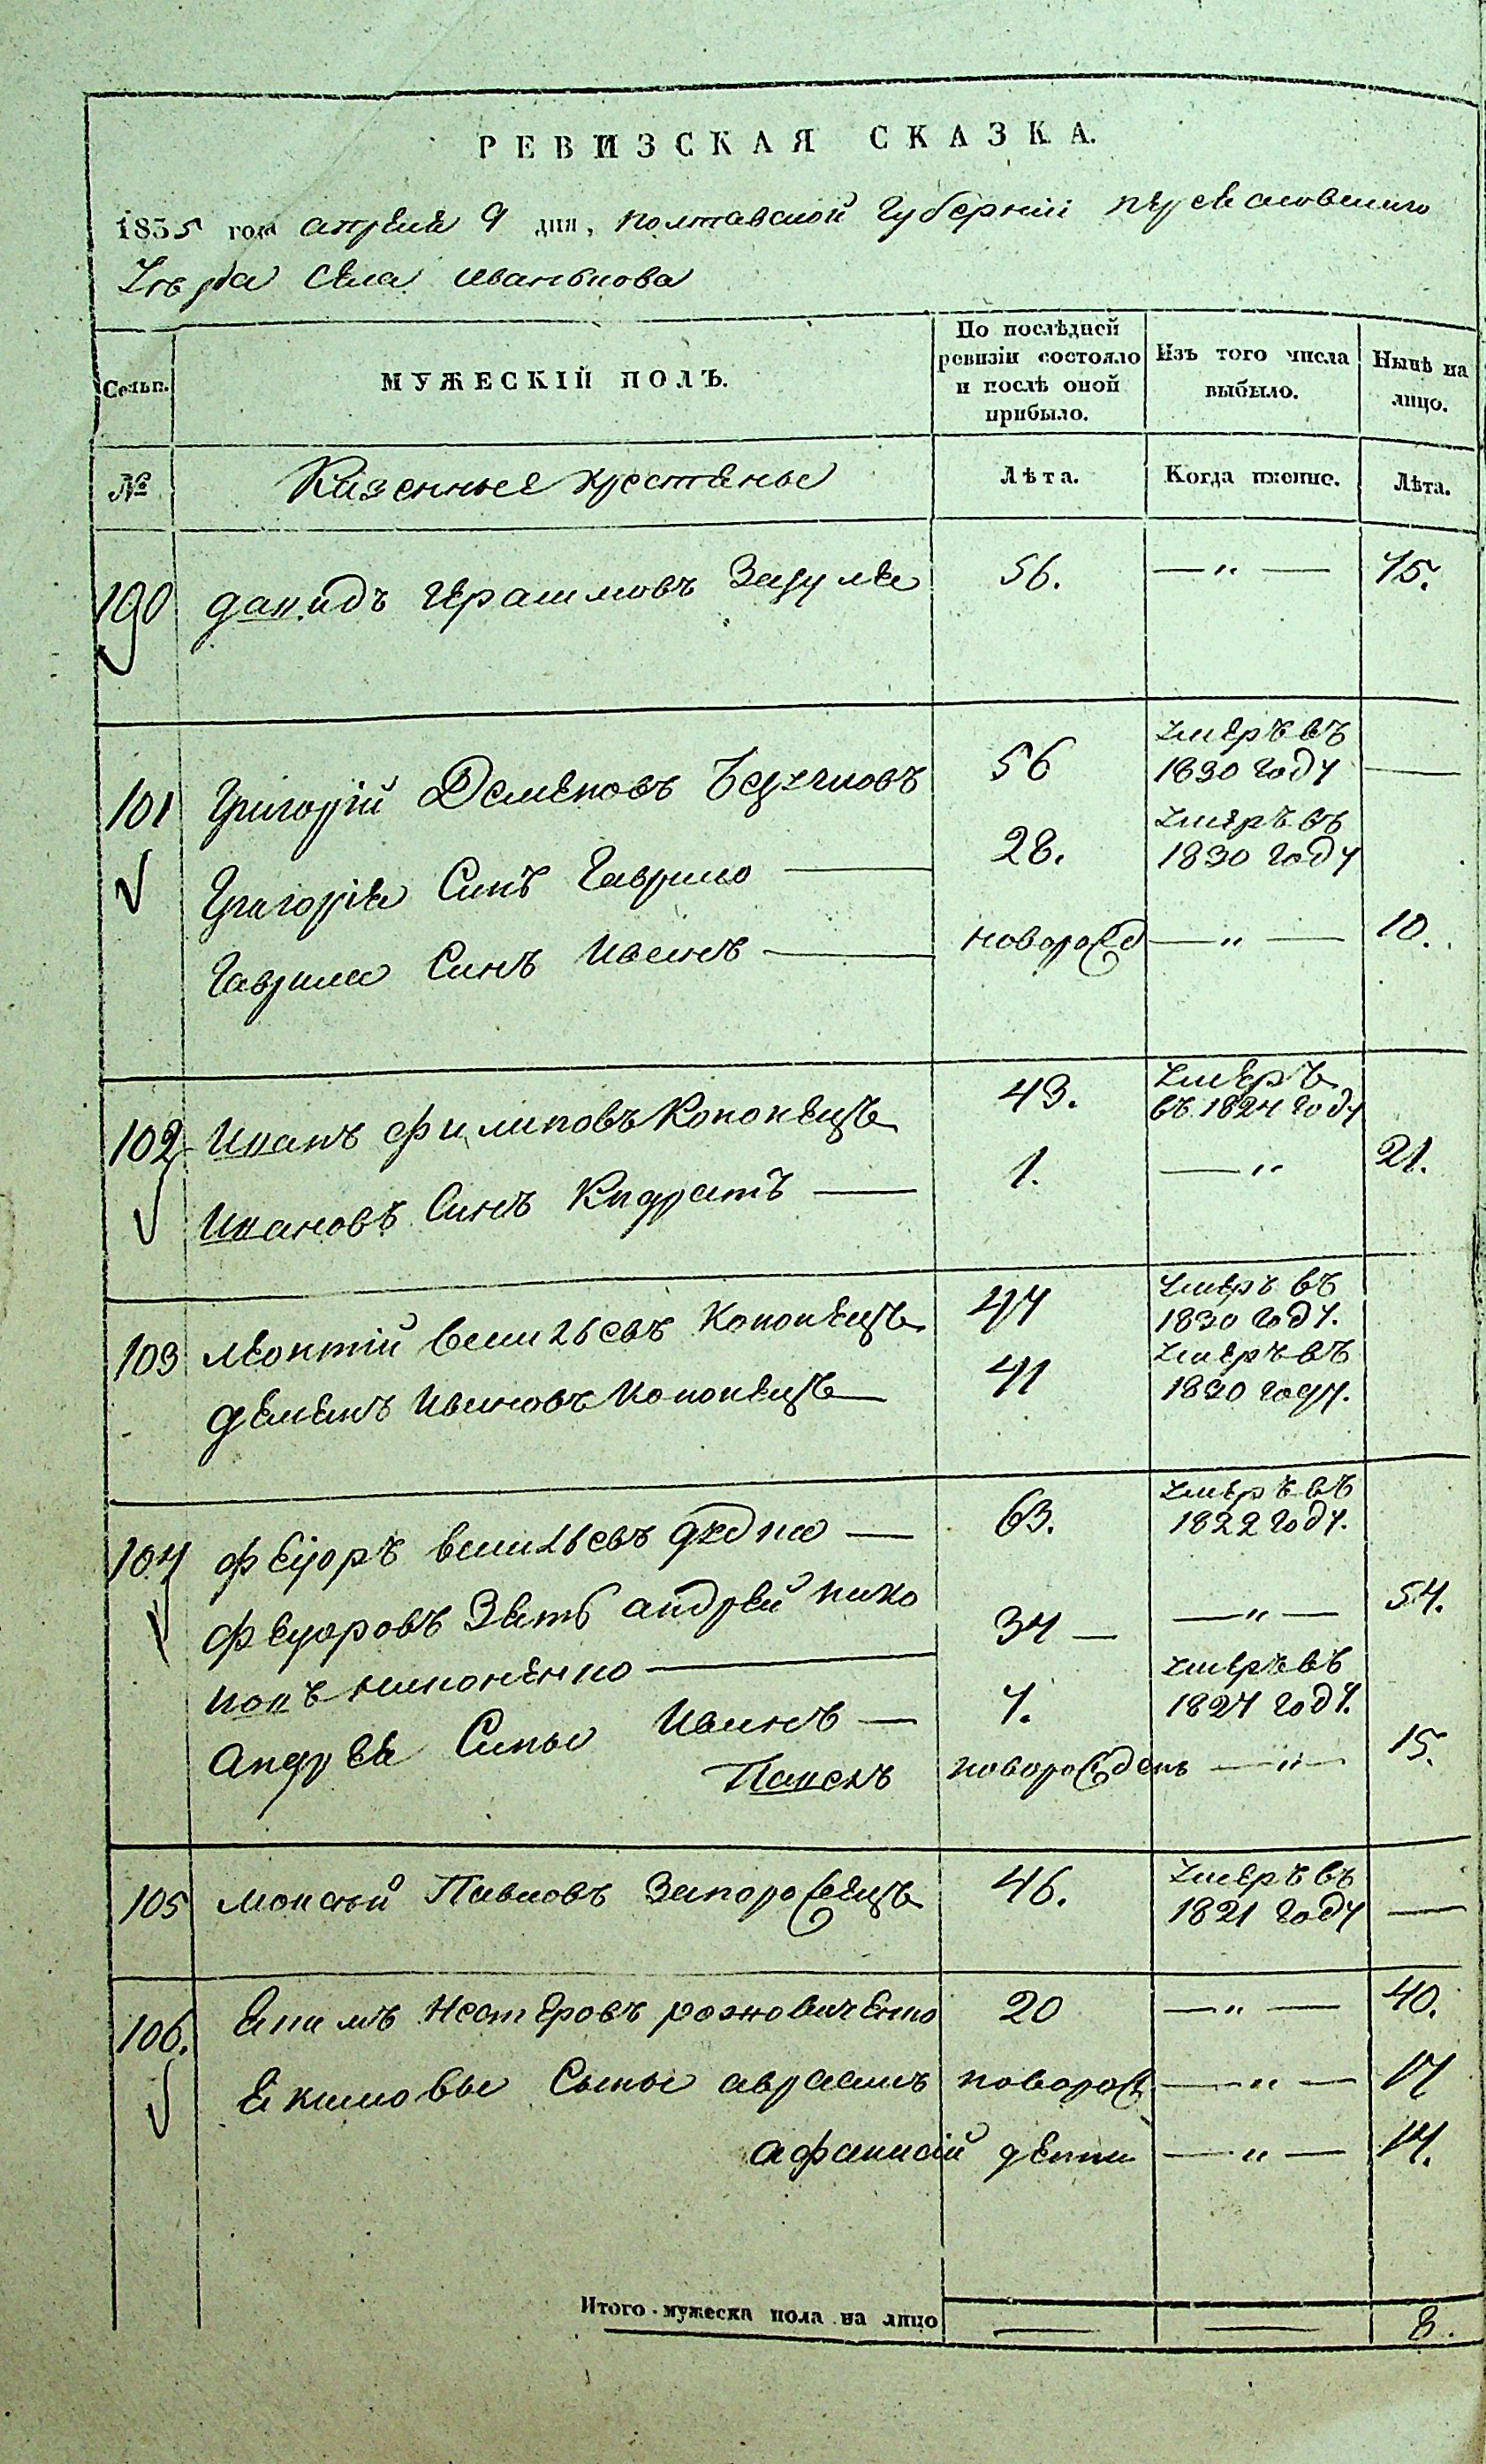 РЕВИЗСКАЯ СКАЗКА.
1835 года апреля 9 дня, Полтавской Губернии Переясловского
Уезда Села Иванькова
Сельн.
МУЖЕСКІЙ ПОЛЪ.
По послѣдней
ревизіи состояло
и послѣ оной
прибыло.
Изъ того числа
выбыло.
Нынѣ на
лицо.
№
Казенные крестяне
Лѣта.
Когда именно.
Лѣта.
100 давидъ Герасимовъ 56. — „ — 75.
101 Григорій Деменовъ 56 Умеръ въ
1830 году —
Григорія Синъ Гаврило — 28. Умеръ въ
1830 году
Гаврила Синъ Иванъ — новорожд — „ — 10.
102 Иванъ филиповъ Кононецъ 43. Умеръ
въ 1824 году
Ивановъ Синъ Кндратъ — 1. — „ 21.
103 леонтій васильевъ Кононецъ 47 Умеръ въ
1830 году.
деменъ Ивановъ Кононецъ 41 Умеръ въ
1830 году.
104 федоръ васильевъ — 63. Умеръ въ
1822 году.
федоровъ Зять андрей нико
новъ 34 — — „ — 54.
андрея Сины Иванъ — 7. Умеръ въ
1824 году.
Павелъ новорожденъ — „ — 15.
105 мокій Павловъ Запорожецъ 46. Умеръ въ
1821 году —
106. Екимъ Нестеровъ рохновиченко 20 — „ — 40.
Екимовы Сыны авраамъ новорож — „ — 17
афанасій дети — „ — 14.
Итого мужеска пола на лицо — — 8.